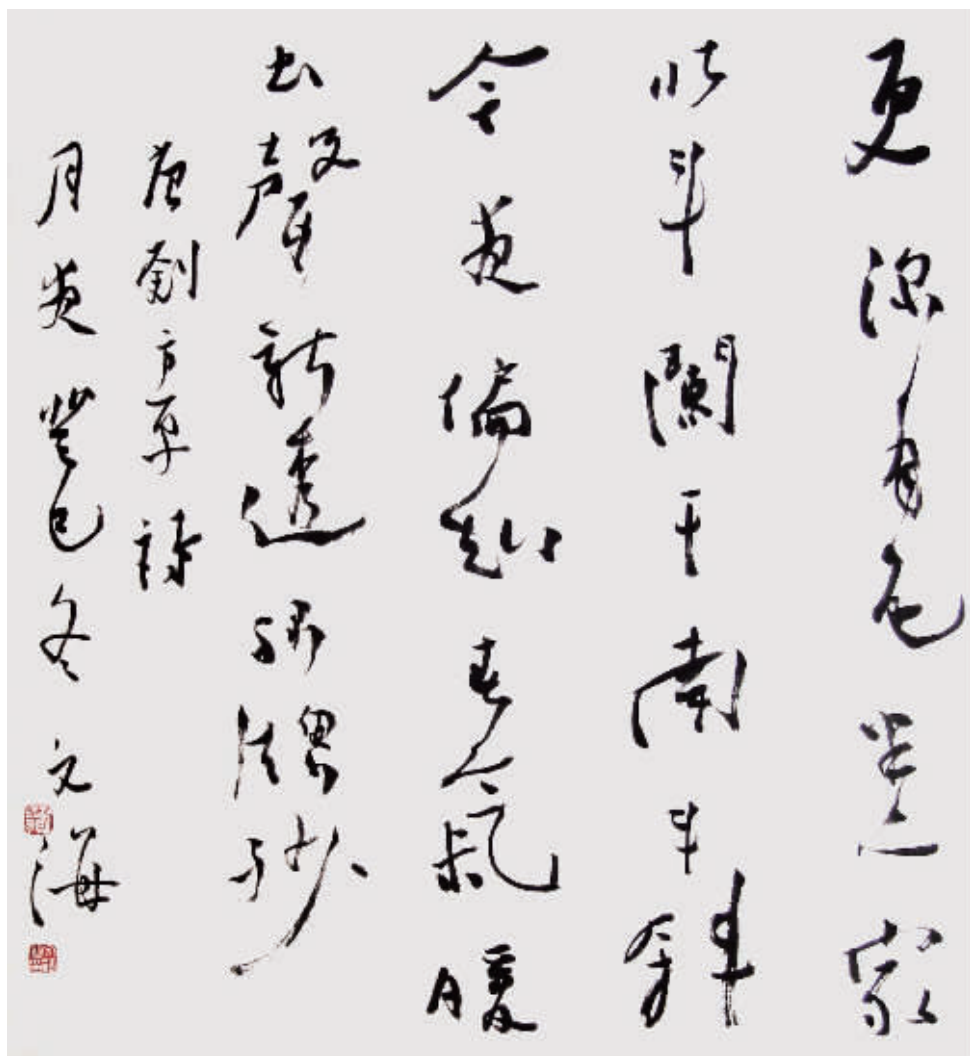 更深月色半人家
北斗闌干南斗斜
今夜偏知春氣暖
虫聲新透綠窗紗
唐劉方平詩
月夜癸巳冬文海